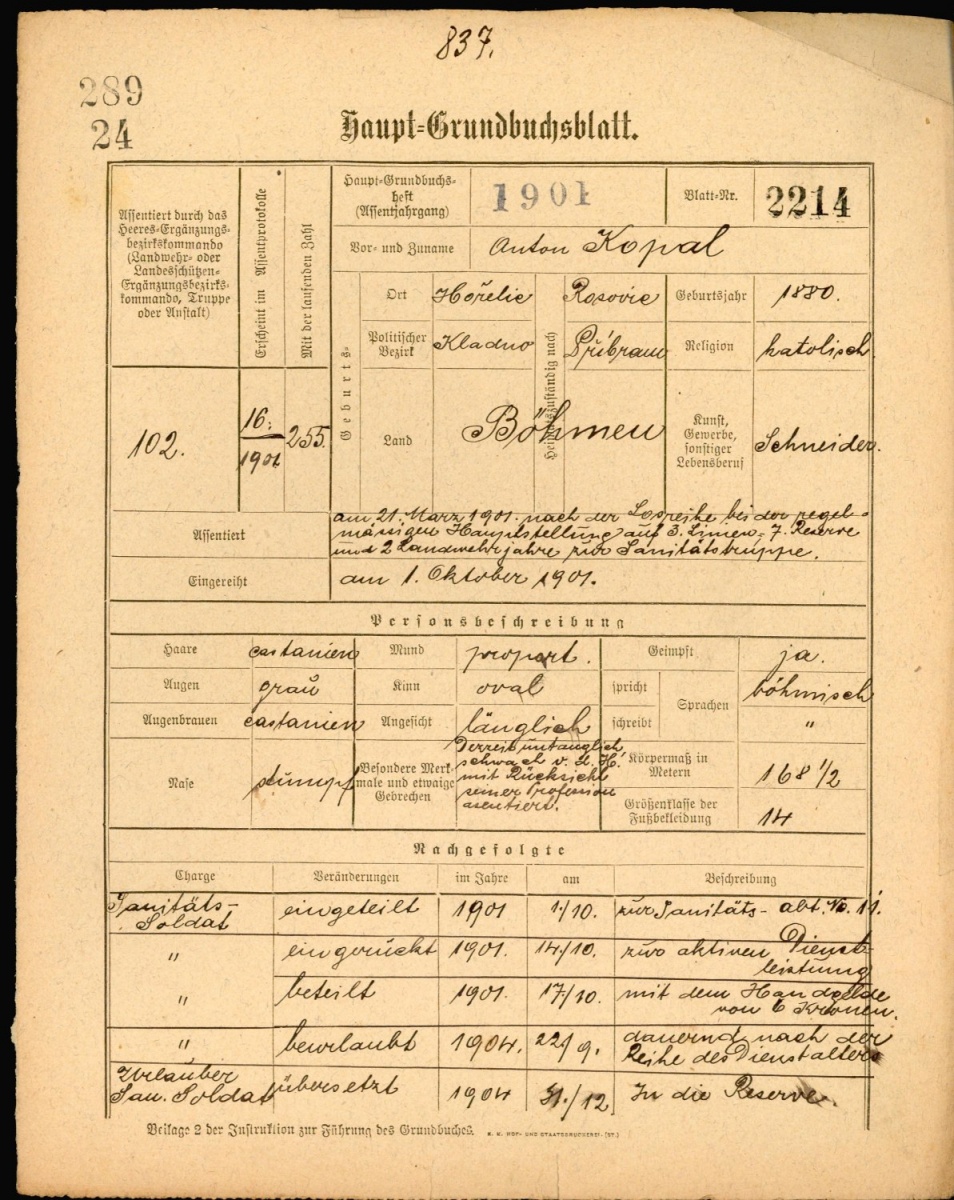 837.
289
24
Haupt=Grundbuchsblatt.
Assentiert durch das
Heeres-Ergänzungs-
bezirkskommando
(Landwehr- oder
Landesschützen-
Ergänzungsbezirks-
kommando, Truppe
oder Anstalt)
Erscheint im Assentprotokolle
Mit der laufenden Zahl
Haupt-Grundbuchs-
heft
(Assentjahrgang)
1901
Blatt-Nr.
2214
Vor- und Zuname
Anton Kopal
Geburts-
Ort
Hořelic
Heimatszuständig nach
Rosovic
Geburtsjahr
1880.
Politischer
Bezirk
Kladno
Příbram
Religion
katolisch.
102.
16.
1901
255.
Land
Böhmen
Kunst,
Gewerbe,
sonstiger
Lebensberuf
Schneider.
Assentiert
am 21. März 1901. nach der Losreihe bei der regel-
mässigen Hauptstellung auf 3. Linien- 7. Reserve
und 2 Landwehrjahre zur Sanitätstruppe.
Eingereiht
am 1. Oktober 1901.
Personsbeschreibung
Haare
castanien
Mund
proport.
Geimpft
ja.
Augen
grau
Kinn
oval
spricht
Sprachen
böhmisch
Augenbrauen
castanien
Angesicht
länglich
schreibt
"
Nase
stumpf
Besondere Merk-
male und etwaige
Gebrechen
Derzeit untauglich
schwach v. d. H.
mit Rücksicht
seiner Profession
asentiert.
Körpermaß in
Metern
168 1/2
Größenklasse der
Fußbekleidung
14
Nachgefolgte
Charge
Veränderungen
im Jahre
am
Beschreibung
Sanitäts-
Soldat
eingeteilt
1901
1/10.
zur Sanitäts- abt. No. 11.
"
eingerückt
1901.
14/10.
zur aktiven Dienst-
leistung
"
beteilt
1901.
17/10.
mit dem Handgelde
von 6 Kronen.
"
beurlaubt
1904.
22/9.
dauernd nach der
Reihe des Dienstalters
Urlauber
San. Soldat
übersetzt
1904
31./12
In die Reserve.
Beilage 2 der Instruktion zur Führung des Grundbuches.
K. K. HOF- UND STAATSDRUCKEREI. (ST.)